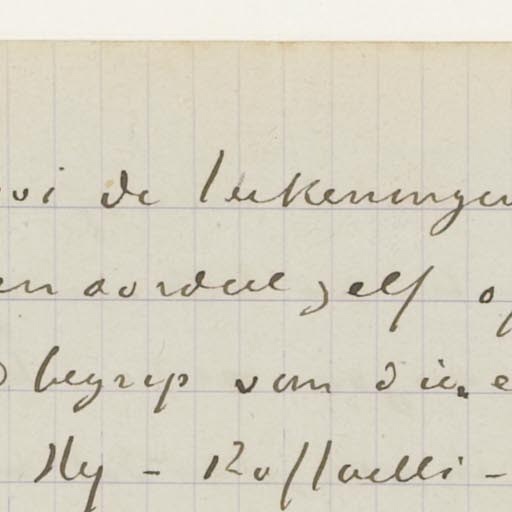 ovi de teekeningen
en oordeel zelf of
begrip van die e
Hy - Raffaelli -